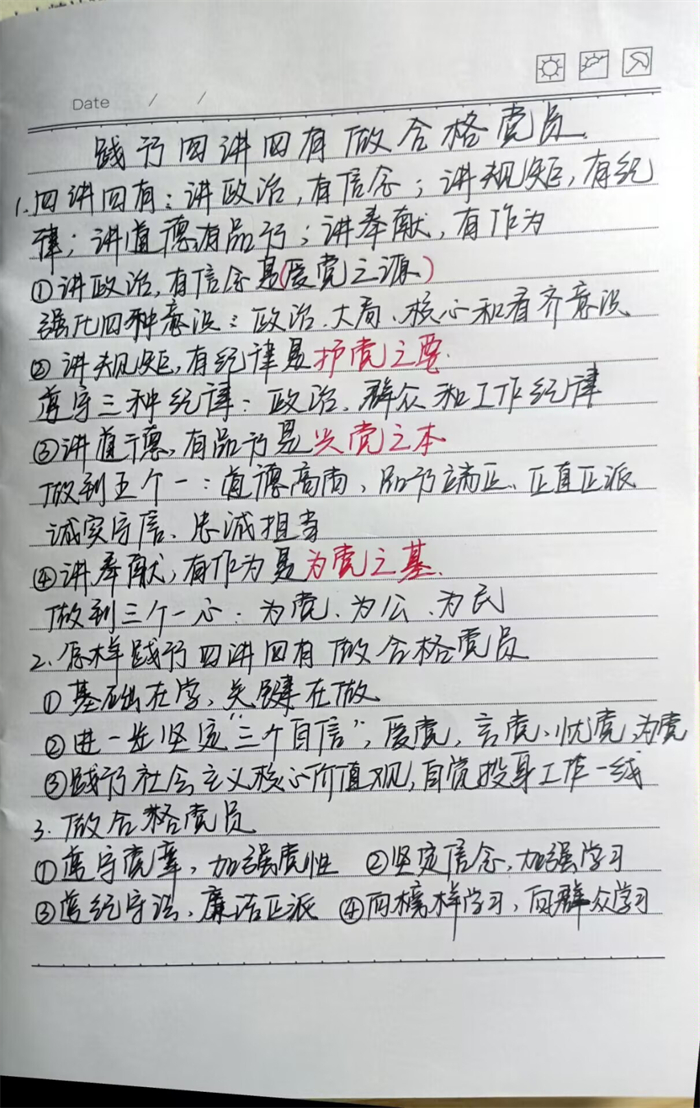 Date / /
践行四讲四有做合格党员
1.四讲四有：讲政治,有信念；讲规矩,有纪
律；讲道德有品行；讲奉献,有作为
①讲政治,有信念是(爱党之源)
强化四种意识：政治、大局、核心和看齐意识
②讲规矩,有纪律是护党之要.
遵守三种纪律：政治、群众和工作纪律
③讲道德,有品行是兴党之本
做到五个一：道德高尚、品行端正、正直正派
诚实守信、忠诚担当
④讲奉献,有作为是为党之基.
做到三个一心：为党、为公、为民
2.怎样践行四讲四有做合格党员
①基础在学、关键在做
②进一步坚定“三个自信”,爱党,言党、忧党、为党
③践行社会主义核心价值观,自觉投身工作一线
3.做合格党员
①遵守党章,加强党性 ②坚定信念,加强学习
③遵纪守法、廉洁正派 ④向榜样学习,向群众学习